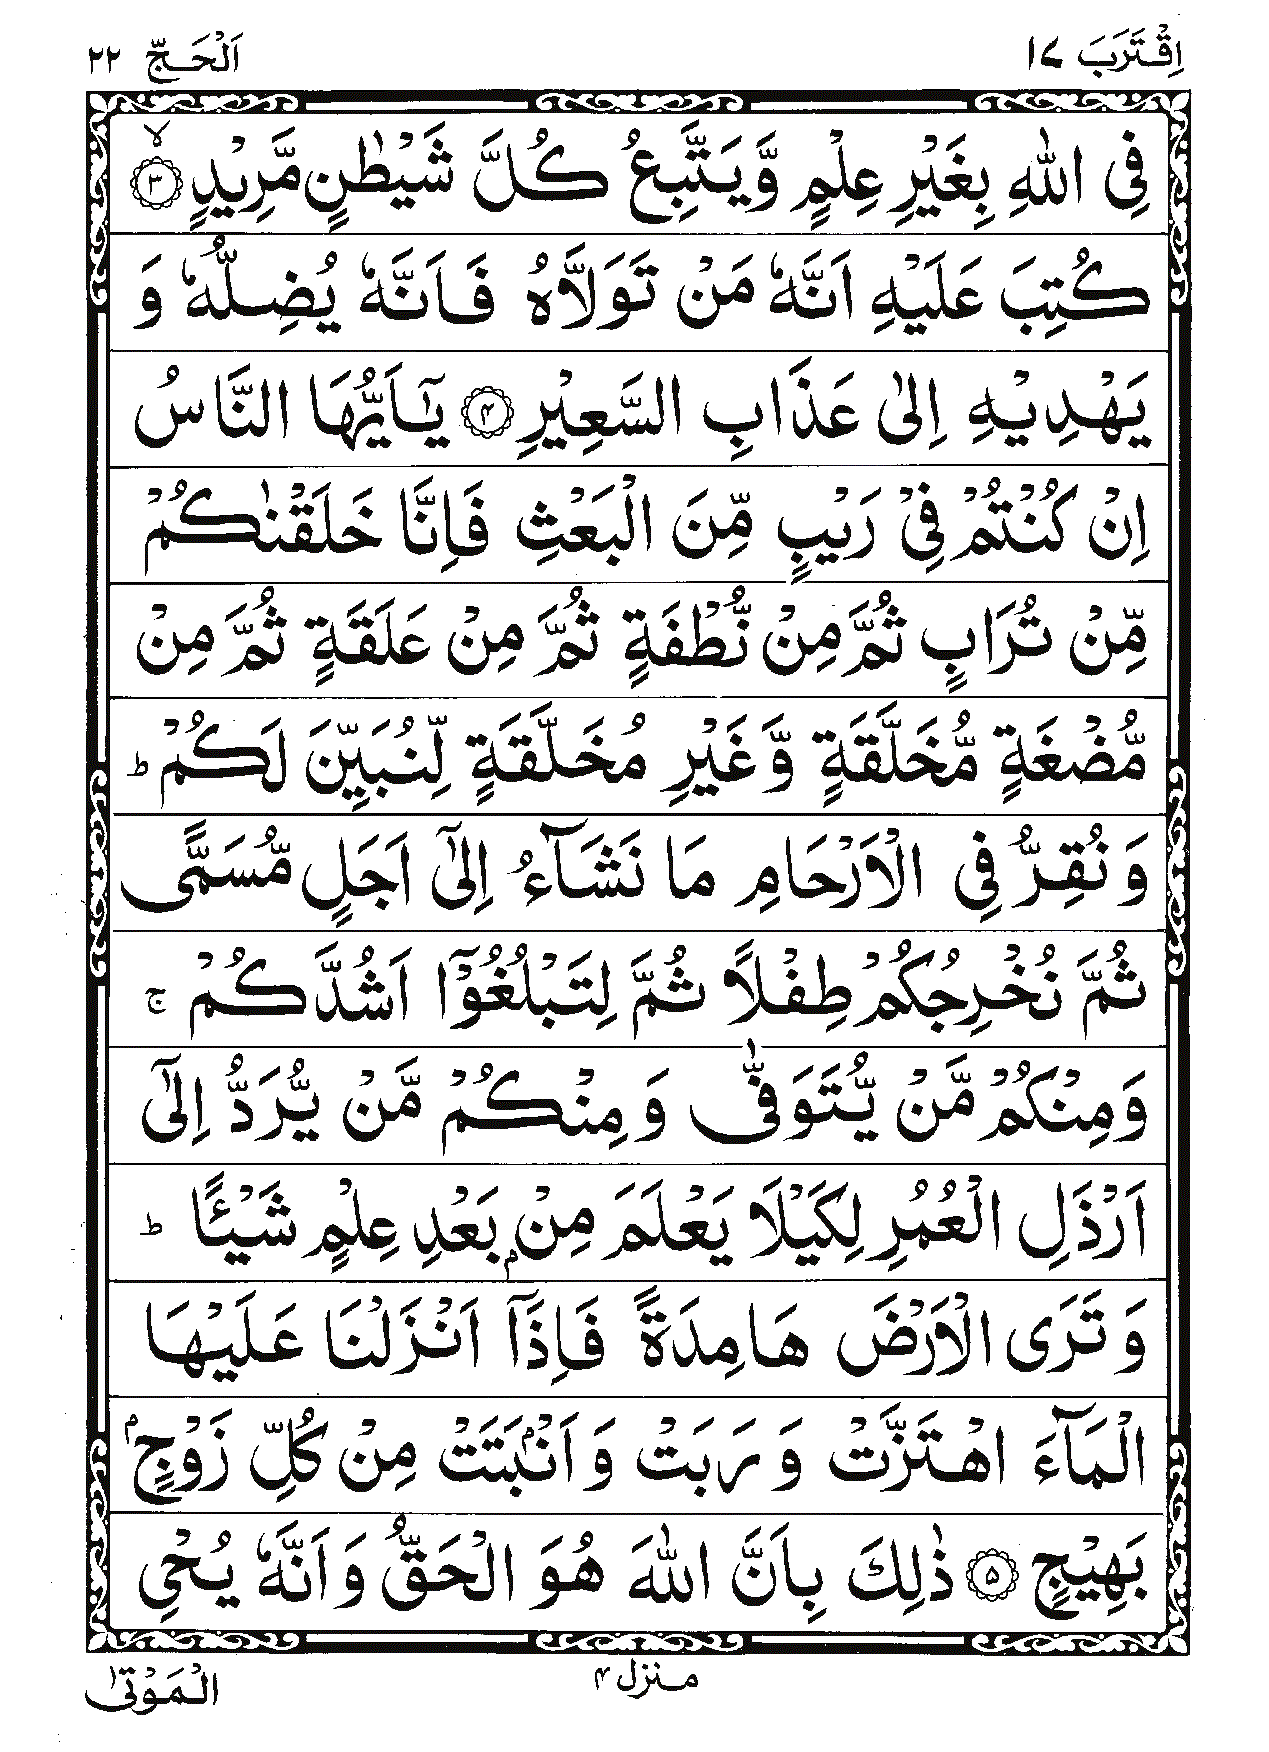 اِقْتَرَبَ ١٧ اَلْحَجّ ٢٢
فِی اللّٰهِ بِغَیْرِ عِلْمٍ وَّیَتَّبِعُ كُلَّ شَیْطٰنٍ مَّرِیْدٍ ۙ‏﴿۳﴾
كُتِبَ عَلَیْهِ اَنَّهٗ مَنْ تَوَلَّاهُ فَاَنَّهٗ یُضِلُّهٗ وَ
یَهْدِیْهِ اِلٰی عَذَابِ السَّعِیْرِ ﴿۴﴾ یٰۤاَیُّهَا النَّاسُ
اِنْ كُنْتُمْ فِیْ رَیْبٍ مِّنَ الْبَعْثِ فَاِنَّا خَلَقْنٰكُمْ
مِّنْ تُرَابٍ ثُمَّ مِنْ نُّطْفَةٍ ثُمَّ مِنْ عَلَقَةٍ ثُمَّ مِنْ
مُّضْغَةٍ مُّخَلَّقَةٍ وَّغَیْرِ مُخَلَّقَةٍ لِّنُبَیِّنَ لَكُمْ ؕ
وَ نُقِرُّ فِی الْاَرْحَامِ مَا نَشَآءُ اِلٰۤی اَجَلٍ مُّسَمًّی
ثُمَّ نُخْرِجُكُمْ طِفْلًا ثُمَّ لِتَبْلُغُوْۤا اَشُدَّكُمْ ۚ
وَمِنْكُمْ مَّنْ یُّتَوَفّٰی وَ مِنْكُمْ مَّنْ یُّرَدُّ اِلٰۤی
اَرْذَلِ الْعُمُرِ لِكَیْلَا یَعْلَمَ مِنْۢ بَعْدِ عِلْمٍ شَیْـًٔا ؕ
وَ تَرَی الْاَرْضَ هَامِدَةً فَاِذَاۤ اَنْزَلْنَا عَلَیْهَا
الْمَآءَ اهْتَزَّتْ وَ رَبَتْ وَ اَنْۢبَتَتْ مِنْ كُلِّ زَوْجٍۭ
بَهِیْجٍ ﴿۵﴾ ذٰلِكَ بِاَنَّ اللّٰهَ هُوَ الْحَقُّ وَ اَنَّهٗ یُحْیِ
منزل ۴
الْمَوْتٰی